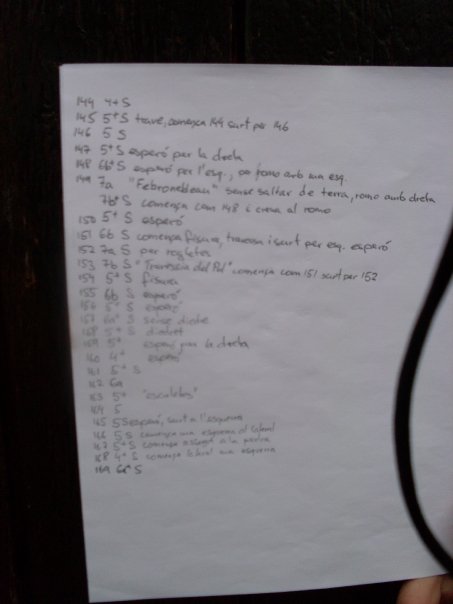 144 4+ S
145 5+ S travé, comença 144 surt per 146
146 5 S
147 5+ S esperó per la dreta
148 6b+ S esperó per l'esq., romo amb ma esq.
149 7a "Febronebleau" sense saltar de terra, romo amb dreta
7b+ S comença com 148 i creua al romo
150 5+ S esperó
151 6b S comença fisura, travessa i surt per esq. esperó
152 7a S per regletes
153 7b S "Travessia del Pol" comença com 151 surt per 152
154 5+ S fisura
155 6b S esperó
156 5+ S esperó
157 6a+ S sense diedre
158 5+ S diedret
159 5+ esperó per la dreta
160 4+ esperó
161 5+ S
162 6a
163 5+ "escaletes"
164 5
165 5 S esperó, surt a l'esquerra
166 5 S comença ma esquerra al lateral
167 5+ S comença assegut a la pedra
168 4+ S comença lateral ma esquerra
169 6a+ S